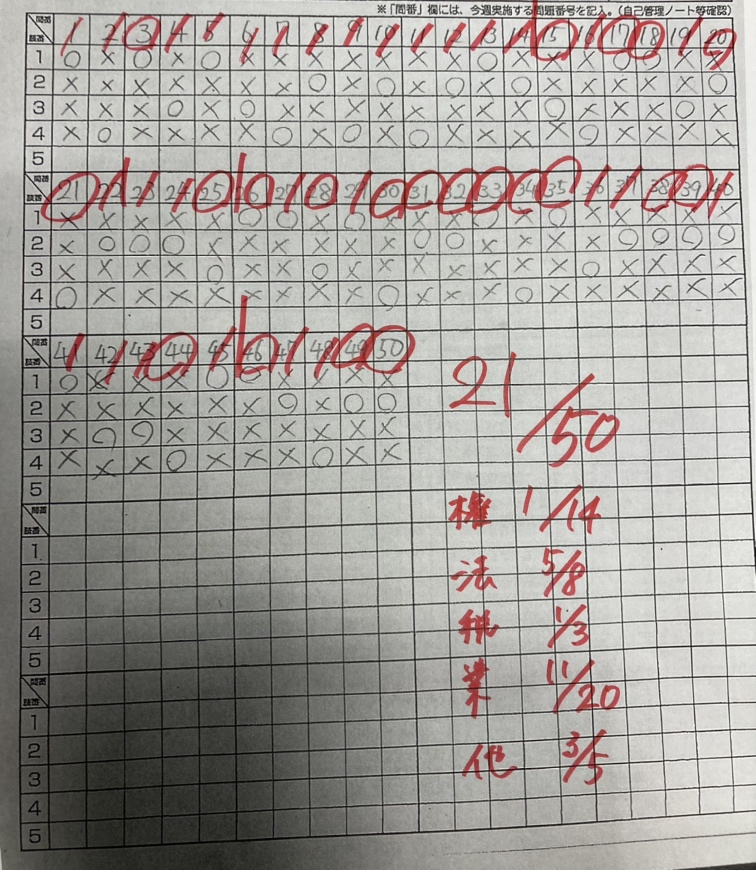 ※「問番」欄には、今週実施する問題番号を記入。(自己管理ノート等確認)
問番 1 2 3 4 5 6 7 8 9 10 11 12 13 14 15 16 17 18 19 20
肢番
1 ○ × ○ × ○ × × × × × × × ○ × × × ○ ○ × ×
2 × × × × × × × ○ × ○ × ○ × ○ × × × × × ○
3 × × × ○ × ○ × × × × × × × × ○ × × × ○ ×
4 × ○ × × × × ○ × ○ × ○ × × × × ○ × × × ×
5
問番 21 22 23 24 25 26 27 28 29 30 31 32 33 34 35 36 37 38 39 40
肢番
1 × × × × × ○ ○ × ○ × × × ○ × ○ × × × × ×
2 × ○ ○ ○ × × × × × × ○ ○ × × × × ○ ○ ○ ○
3 × × × × ○ × × ○ × × × × × × × ○ × × × ×
4 ○ × × × × × × × × ○ × × × ○ × × × × × ×
5
問番 41 42 43 44 45 46 47 48 49 50
肢番
1 ○ × × × ○ ○ × × × ×
2 × × × × × × ○ × ○ ○
3 × ○ ○ × × × × × × ×
4 × × × ○ × × × ○ × ×
5
21/50
問番
肢番
権 1/14
1
法 5/8
2
3
税 1/3
4
5
業 11/20
問番
肢番
1
代 3/5
2
3
4
5